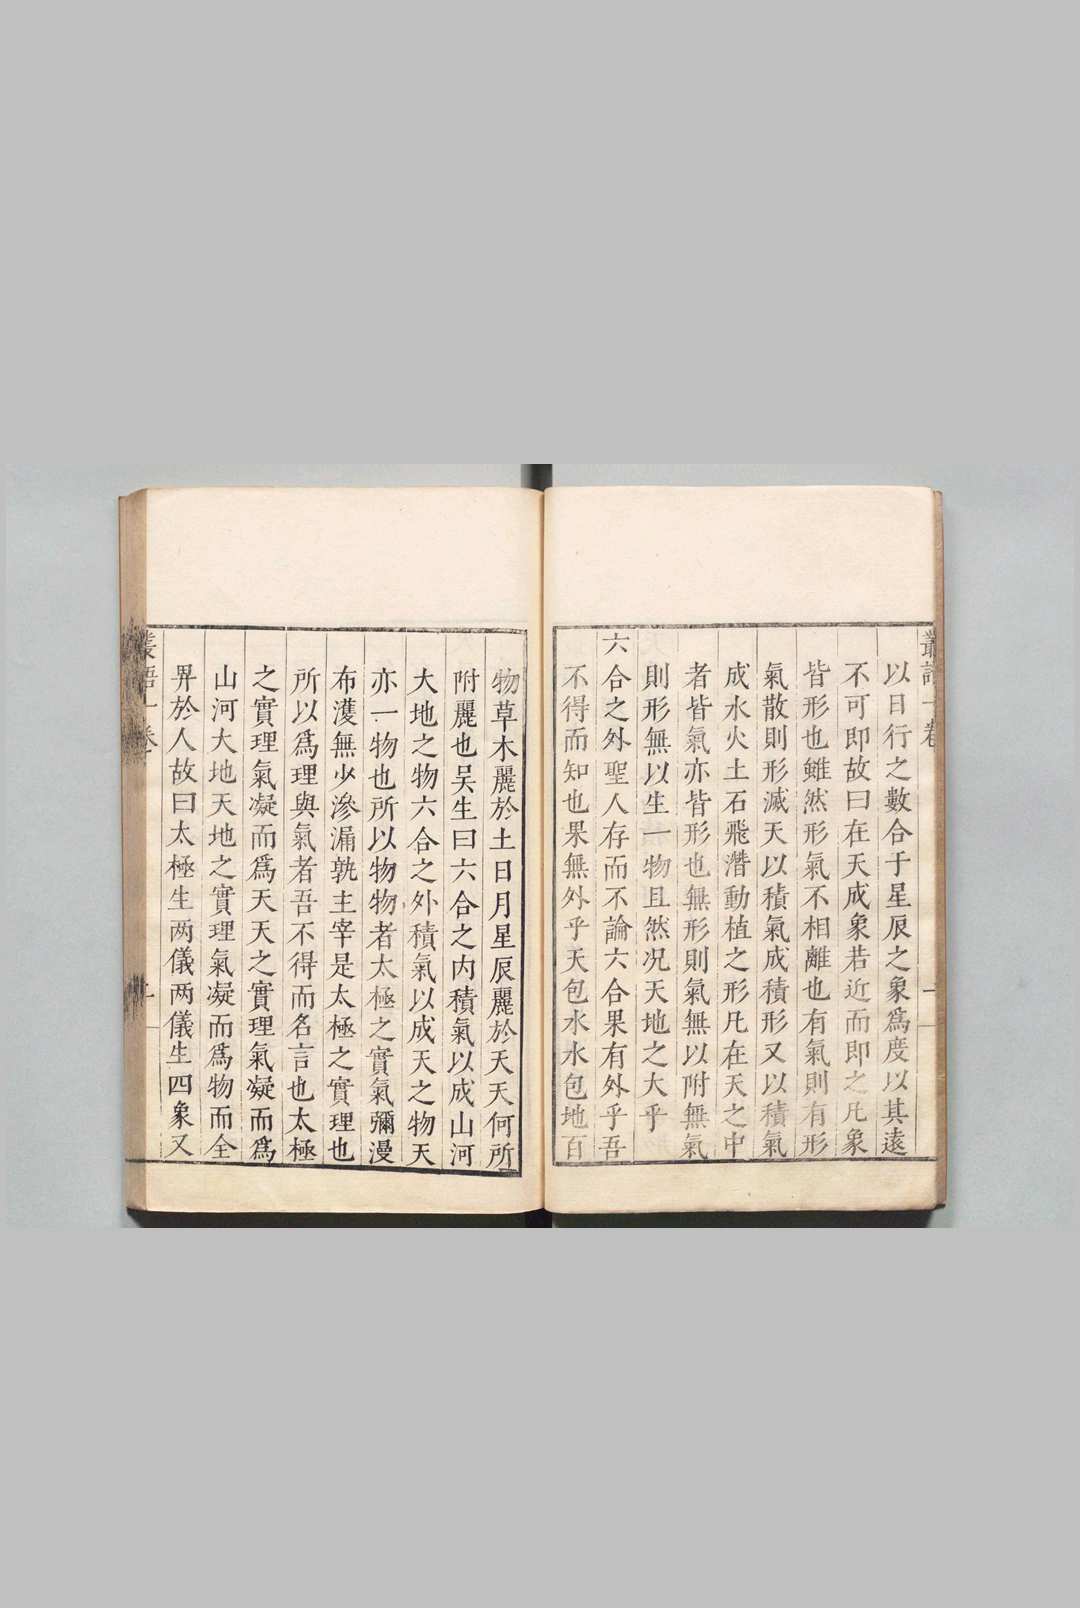 以日行之數合于星辰之象爲度以其遠
不可即故曰在天成象若近而即之凡象
皆形也雖然形氣不相離也有氣則有形
氣散則形滅天以積氣成積形又以積氣
成水火土石飛潛動植之形凡在天之中
者皆氣亦皆形也無形則氣無以附無氣
則形無以生一物且然况天地之大乎
六合之外聖人存而不論六合果有外乎吾
不得而知也果無外乎天包水水包地百
物草木麗於土日月星辰麗於天天何所
附麗也吴生曰六合之内積氣以成山河
大地之物六合之外積氣以成天之物天
亦一物也所以物物者太極之實氣彌漫
布濩無少滲漏孰主宰是太極之實理也
所以爲理與氣者吾不得而名言也太極
之實理氣凝而爲天天之實理氣凝而爲
山河大地天地之實理氣凝而爲物而全
畀於人故曰太極生两儀两儀生四象又
叢語一卷